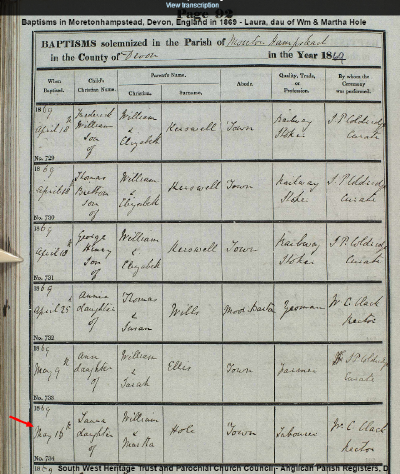 View transcription
Page 92
Baptisms in Moretonhampstead, Devon, England in 1869 - Laura, dau of Wm & Martha Hole
BAPTISMS solemnized in the Parish of Moreton Hampstead
in the County of Devon in the Year 1869
When Baptized. Child's Christian Name. Parent's Name. Christian. Surname. Abode. Quality, Trade, or Profession. By whom the Ceremony was performed.
1869 April 18th Frederick William Son of William & Elizabeth Kerswell Town Railway Stoker
Curate
No. 729
1869 April 18th Thomas Son of William & Elizabeth Kerswell Town Railway Stoker
Curate
No. 730
1869 April 18th George Henry Son of William & Elizabeth Kerswell Town Railway Stoker
Curate
No. 731
1869 April 25th Annie Daughter of Thomas & Susan Wills Yeoman W C Clack Rector
No. 732
1869 May 9th Ann Daughter of William & Sarah Ellis Town Farmer
Curate
No. 733
1869 May 16th Laura Daughter of William & Martha Hole Town Labourer W C Clack Rector
No. 734
South West Heritage Trust and Parochial Church Council - Anglican Parish Registers, D